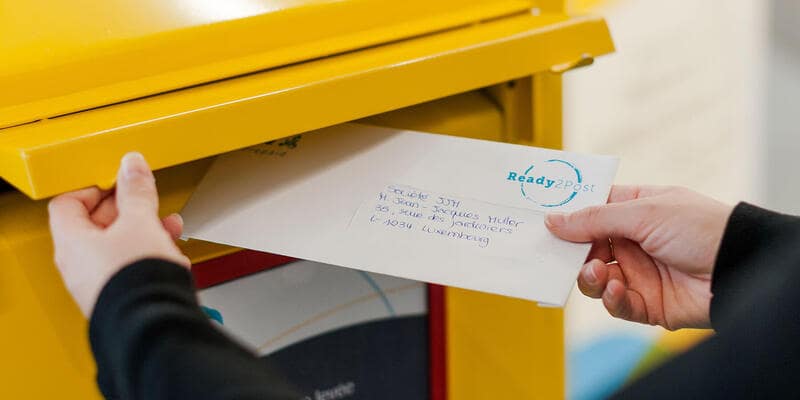 Ready2Post
Société JJM
M. Jean-Jacques Muller
35, rue des jardiniers
L-1034 Luxembourg
levée